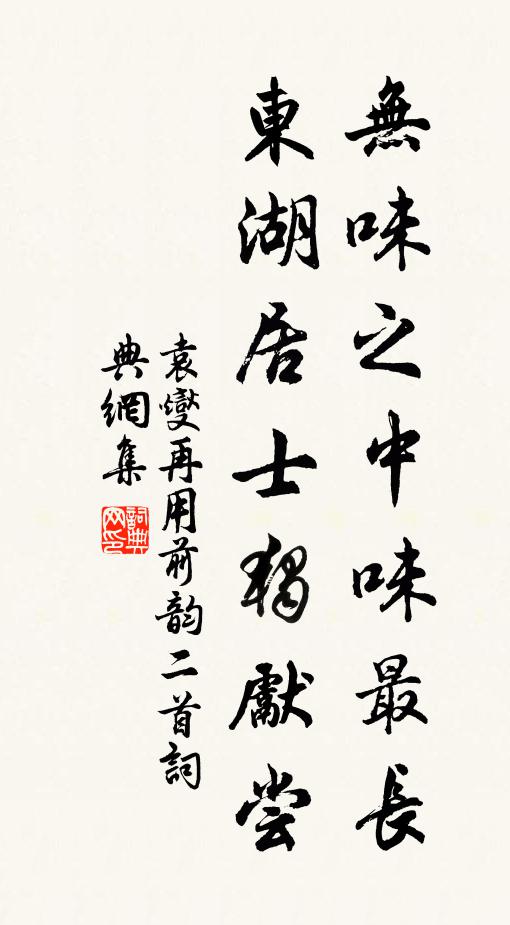 無味之中味最長
東湖居士獨獻尝
袁燮再用前韵二首詞
典網集
詞典网印